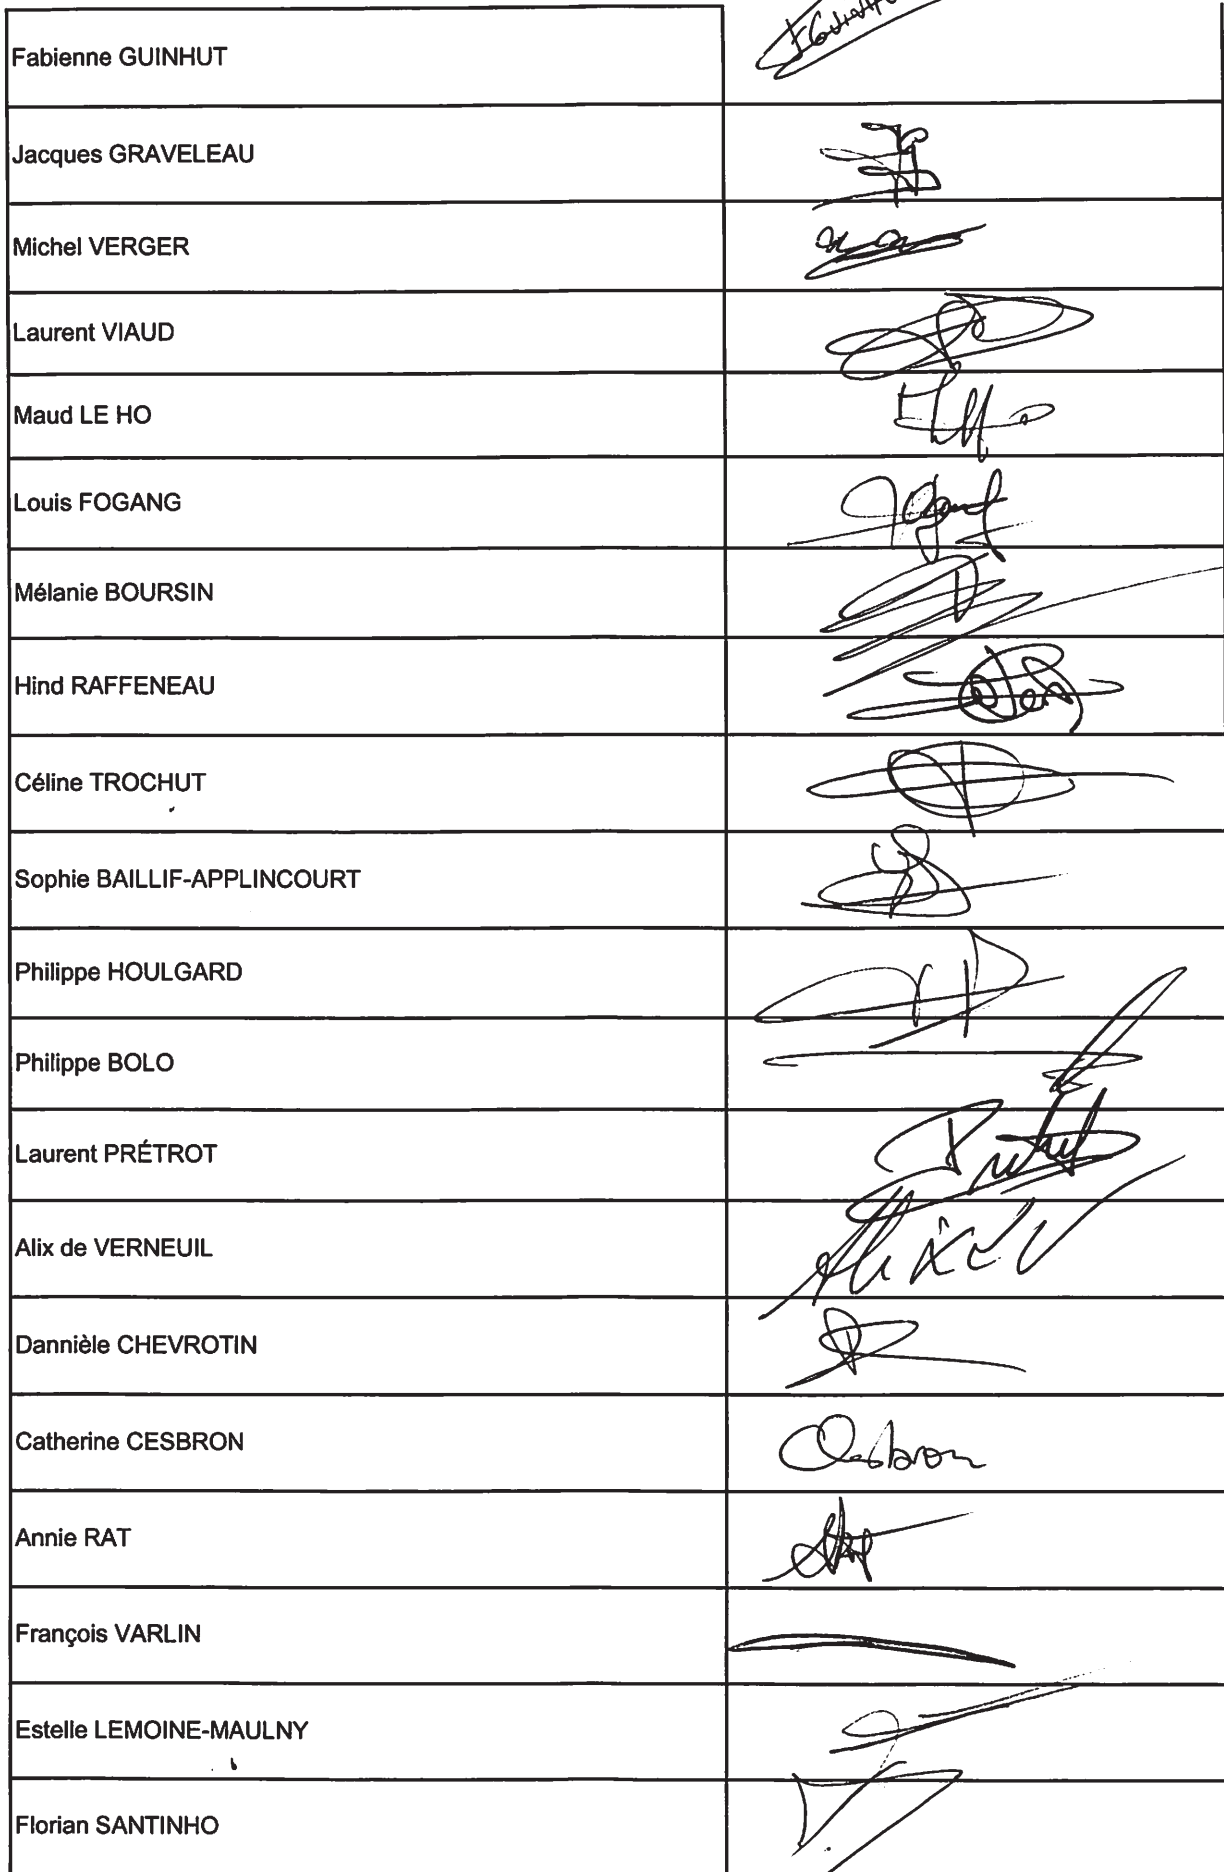 Fabienne GUINHUT
Jacques GRAVELEAU
Michel VERGER
Laurent VIAUD
Maud LE HO
Louis FOGANG
Mélanie BOURSIN
Hind RAFFENEAU
Céline TROCHUT
Sophie BAILLIF-APPLINCOURT
Philippe HOULGARD
Philippe BOLO
Laurent PRÉTROT
Alix de VERNEUIL
Dannièle CHEVROTIN
Catherine CESBRON Cesbron
Annie RAT
François VARLIN
Estelle LEMOINE-MAULNY
Florian SANTINHO